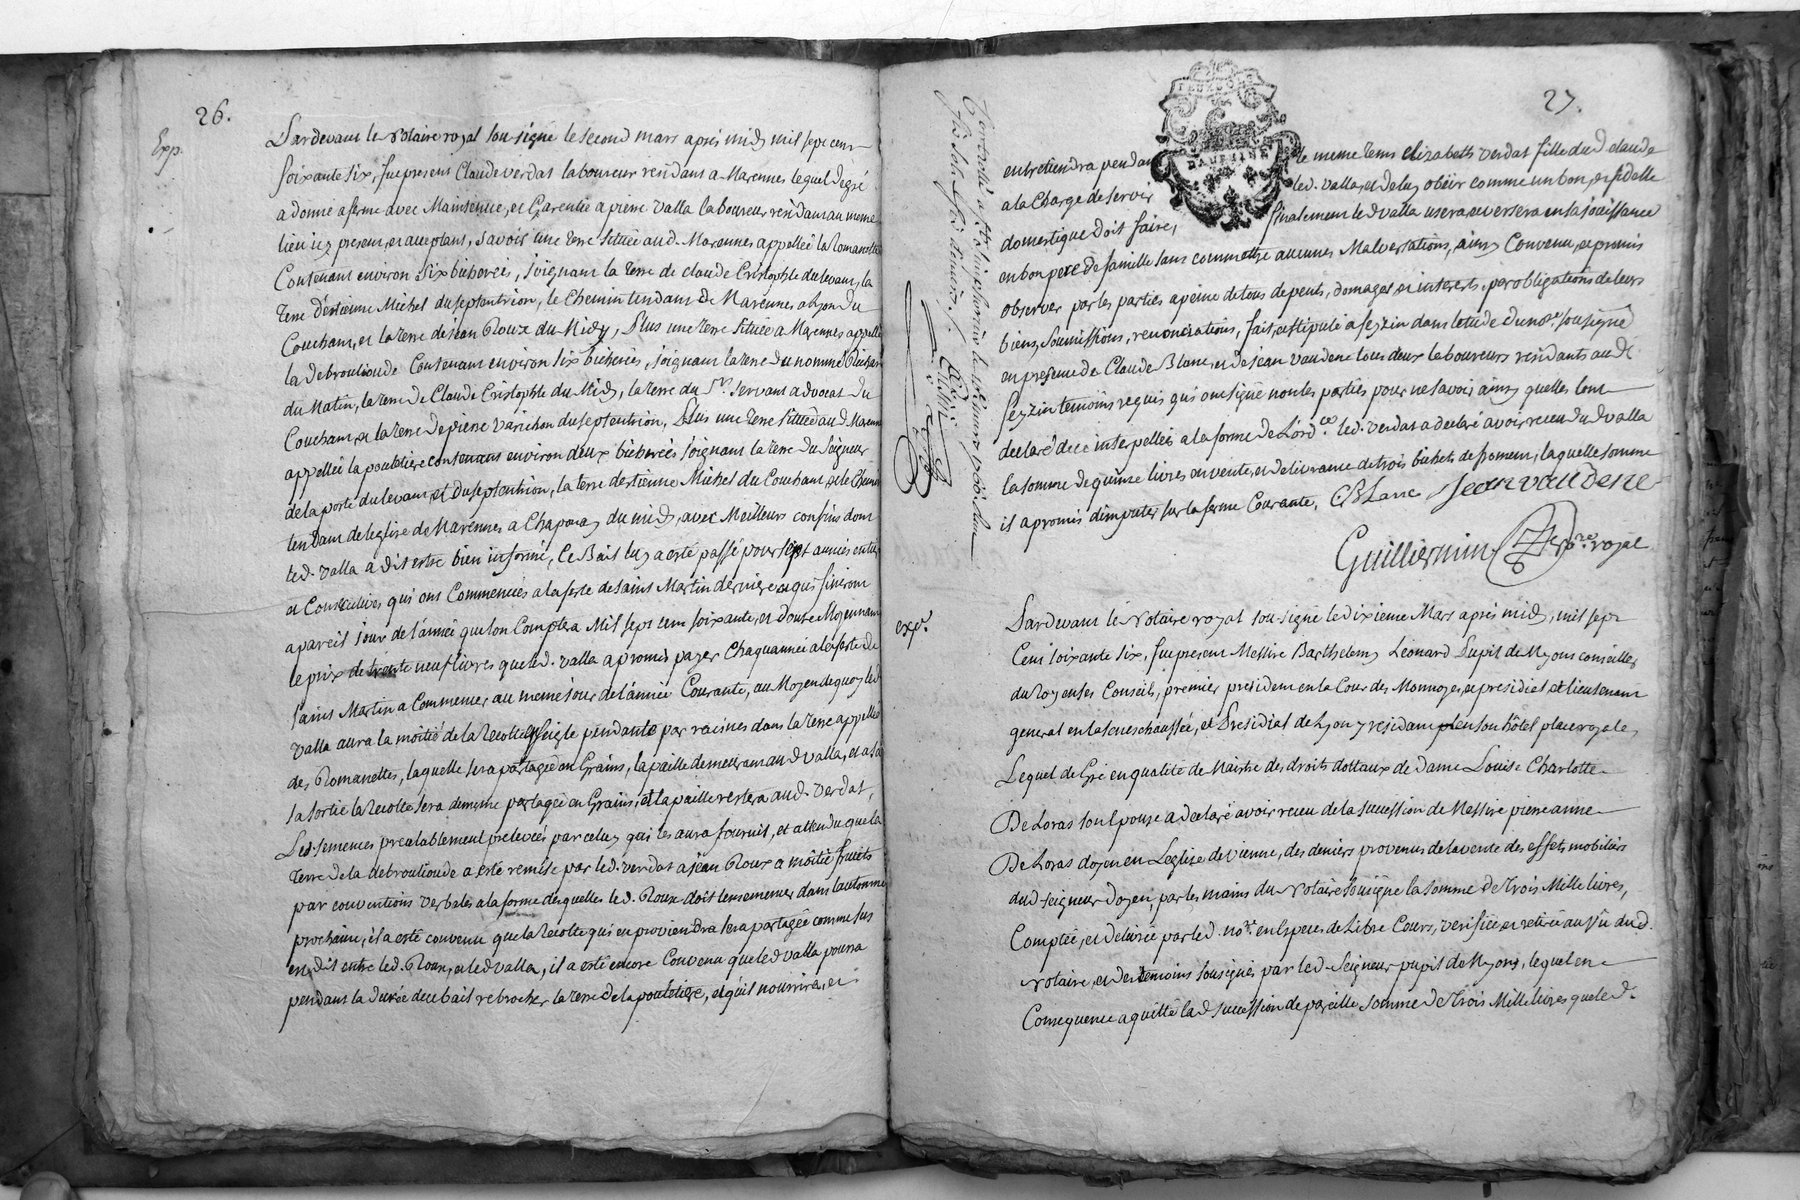 26.
Exp.
Pardevant le Notaire royal sousigné le second mars après midy mil sept cent
soixante six, fut present Claude verdat laboureur residant a Marennes lequel de gré
a donné a ferme avec Maintenüe, et Garentie a pierre valla laboureur residant au meme
lieu icy present, et acceptant, sçavoir une terre située aud. Marennes appellée la Romanette
Contenant environ six bicherées, joignant la terre de claude Cristophle du levant, la
terre d'estienne Michel du septentrion, le Chemin tendant de Marennes a Lyon du
Couchant, et la terre de jean Roux du Midy, Plus une terre située a Marennes appellée
la debroulioude Contenant environ six bicherées, joignant la terre du nommé
du Matin, la terre de Claude Cristophle du Midy, la terre du Sr. servant advocat du
Couchant et la terre de pierre varichon du septentrion, Plus une terre située aud. Marennes
appellée la pouletiere contenant environ deux bicherées joignant la terre du seigneur
de la porte du levant, et du septentrion, la terre d'estienne Michel du Couchant, et le Chemin
tendant de l'eglise de Marennes a Chaponay du midy, avec Meilleurs confins dont
led. valla a dit estre bien informé, Ce Bail luy a esté passé pour sept années entieres
et Consecutives qui ont Commencées a la feste de saint Martin derniere et qui finiront
a pareil jour de l'année que l'on Comptera Mil sept cent soixante, et douze Moyennant
le prix de trente neuf livres que led. valla a promis payer Chaque année a la feste de
saint Martin a Commencer au meme jour de l'année Courante, au Moyen de quoy led
valla aura la moitié de la recolte seigle pendante par racines dans la terre appellée
des Romanettes, laquelle sera partagée en Grains, la paille demeurant aud valla, et a sa
sa sortie la recolte sera de meme partagée en Grains, et la paille restera aud. verdat,
Les semences prealablement prelevées par celuy qui les aura fournit, et attendu que la
terre de la debroulioude a esté remise par led. verdat a jean Roux a moitié fruits
par conventions verbales a la forme desquelles led. Roux doit l'ensemencer dans l'automne
prochaine, il a esté convenu que la recolte qui en proviendra sera partagée comme sus
est dit entre led. Roux, et led valla, il a esté encore Convenu que led valla pourra
pendant la durée de ce bail rebrocher la terre de la pouletiere, et qu'il nourrira, et
27.
DAUPHINÉ
entretiendra pendant le meme tems elizabeth verdat fille dud claude
a la Charge de servir led. valla, et de luy obéir comme un bon, et fidelle
domestique doit faire, finalement led valla usera et versera en sa jouissance
en bon pere de famille sans commettre aucunes Malversations, ainsy Convenu, et promis
observer par les parties a peine de tous depents, domages et interets, par obligations de leurs
biens, soumissions, renonciations, fait, et stipulé a seyzin dans l'etude du nore. sousigné
en presence de Claude Blanc, et de jean vaudene tous deux laboureurs residants aud.
seyzin temoins requis qui ont signé non les parties pour ne savoir ainsy quelles l'ont
declaré de ce interpellées a la forme de l'ordce. led. verdat a declaré avoir receu dud valla
la somme de quinze livres en vente, et delivrance de trois bichets de froment, laquelle somme
il a promis d'imputer sur la ferme Courante, C Blanc Jean vaudene
Guilliermin nre. royal
expé.
Pardevant le Notaire royal sousigné le dixieme Mars après midy, mil sept
Cent soixante six, fut present Messire Barthelemy Leonard Pupil de Myons conseiller
du Roy en ses Conseils, premier president en la Cour des Monnoyes et presidial et lieutenant
general en la seneschaussée, et Presidial de Lyon y residant en son hôtel place royale,
Lequel de Gré en qualité de Maistre des droits dottaux de Dame Louise Charlotte
De Loras son Epouse a declaré avoir receu de la succession de Messire pierre anne
De Loras doyen en L'eglise de vienne, des deniers provenus de la vente des effets mobiliers
dud seigneur doyen, par les mains du Notaire sousigné la somme de trois Mille livres,
Comptée, et delivrée par led. nore. en Especes de Libre Cours, verifiée et retirée au vû dud.
notaire, et des temoins sousignés par led Seigneur pupil de Myons, lequel en
Consequence a quitté lad succession de pareille somme de trois Mille livres que led.